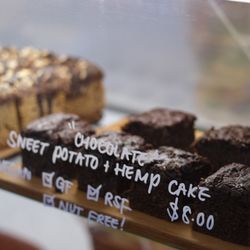 "CHOCOLATE
SWEET POTATO + HEMP CAKE
$8.00
☑ GF ☑ RSF
☑ NUT FREE!